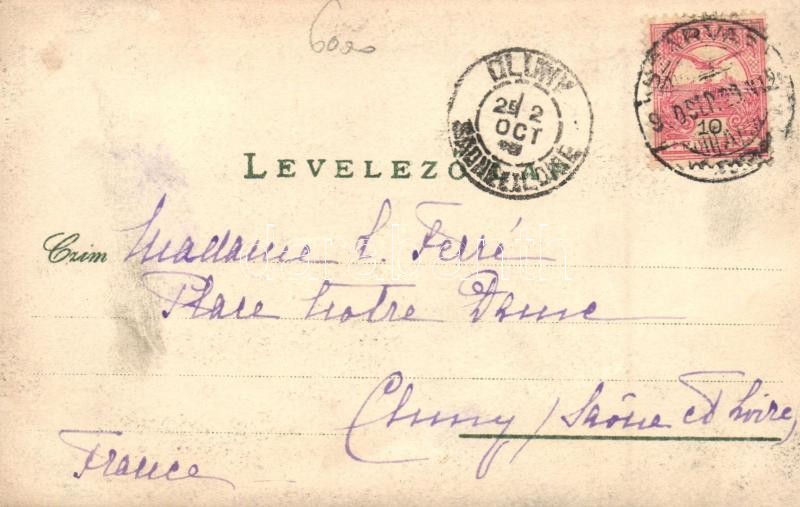 6020
CLUNY
2E/2
OCT
SAONE-ET-LOIRE
SZARVAS
10
LEVELEZŐ-LAP
Czim Madame L. Ferré
Place Notre Dame
Cluny / Saône et Loire,
France